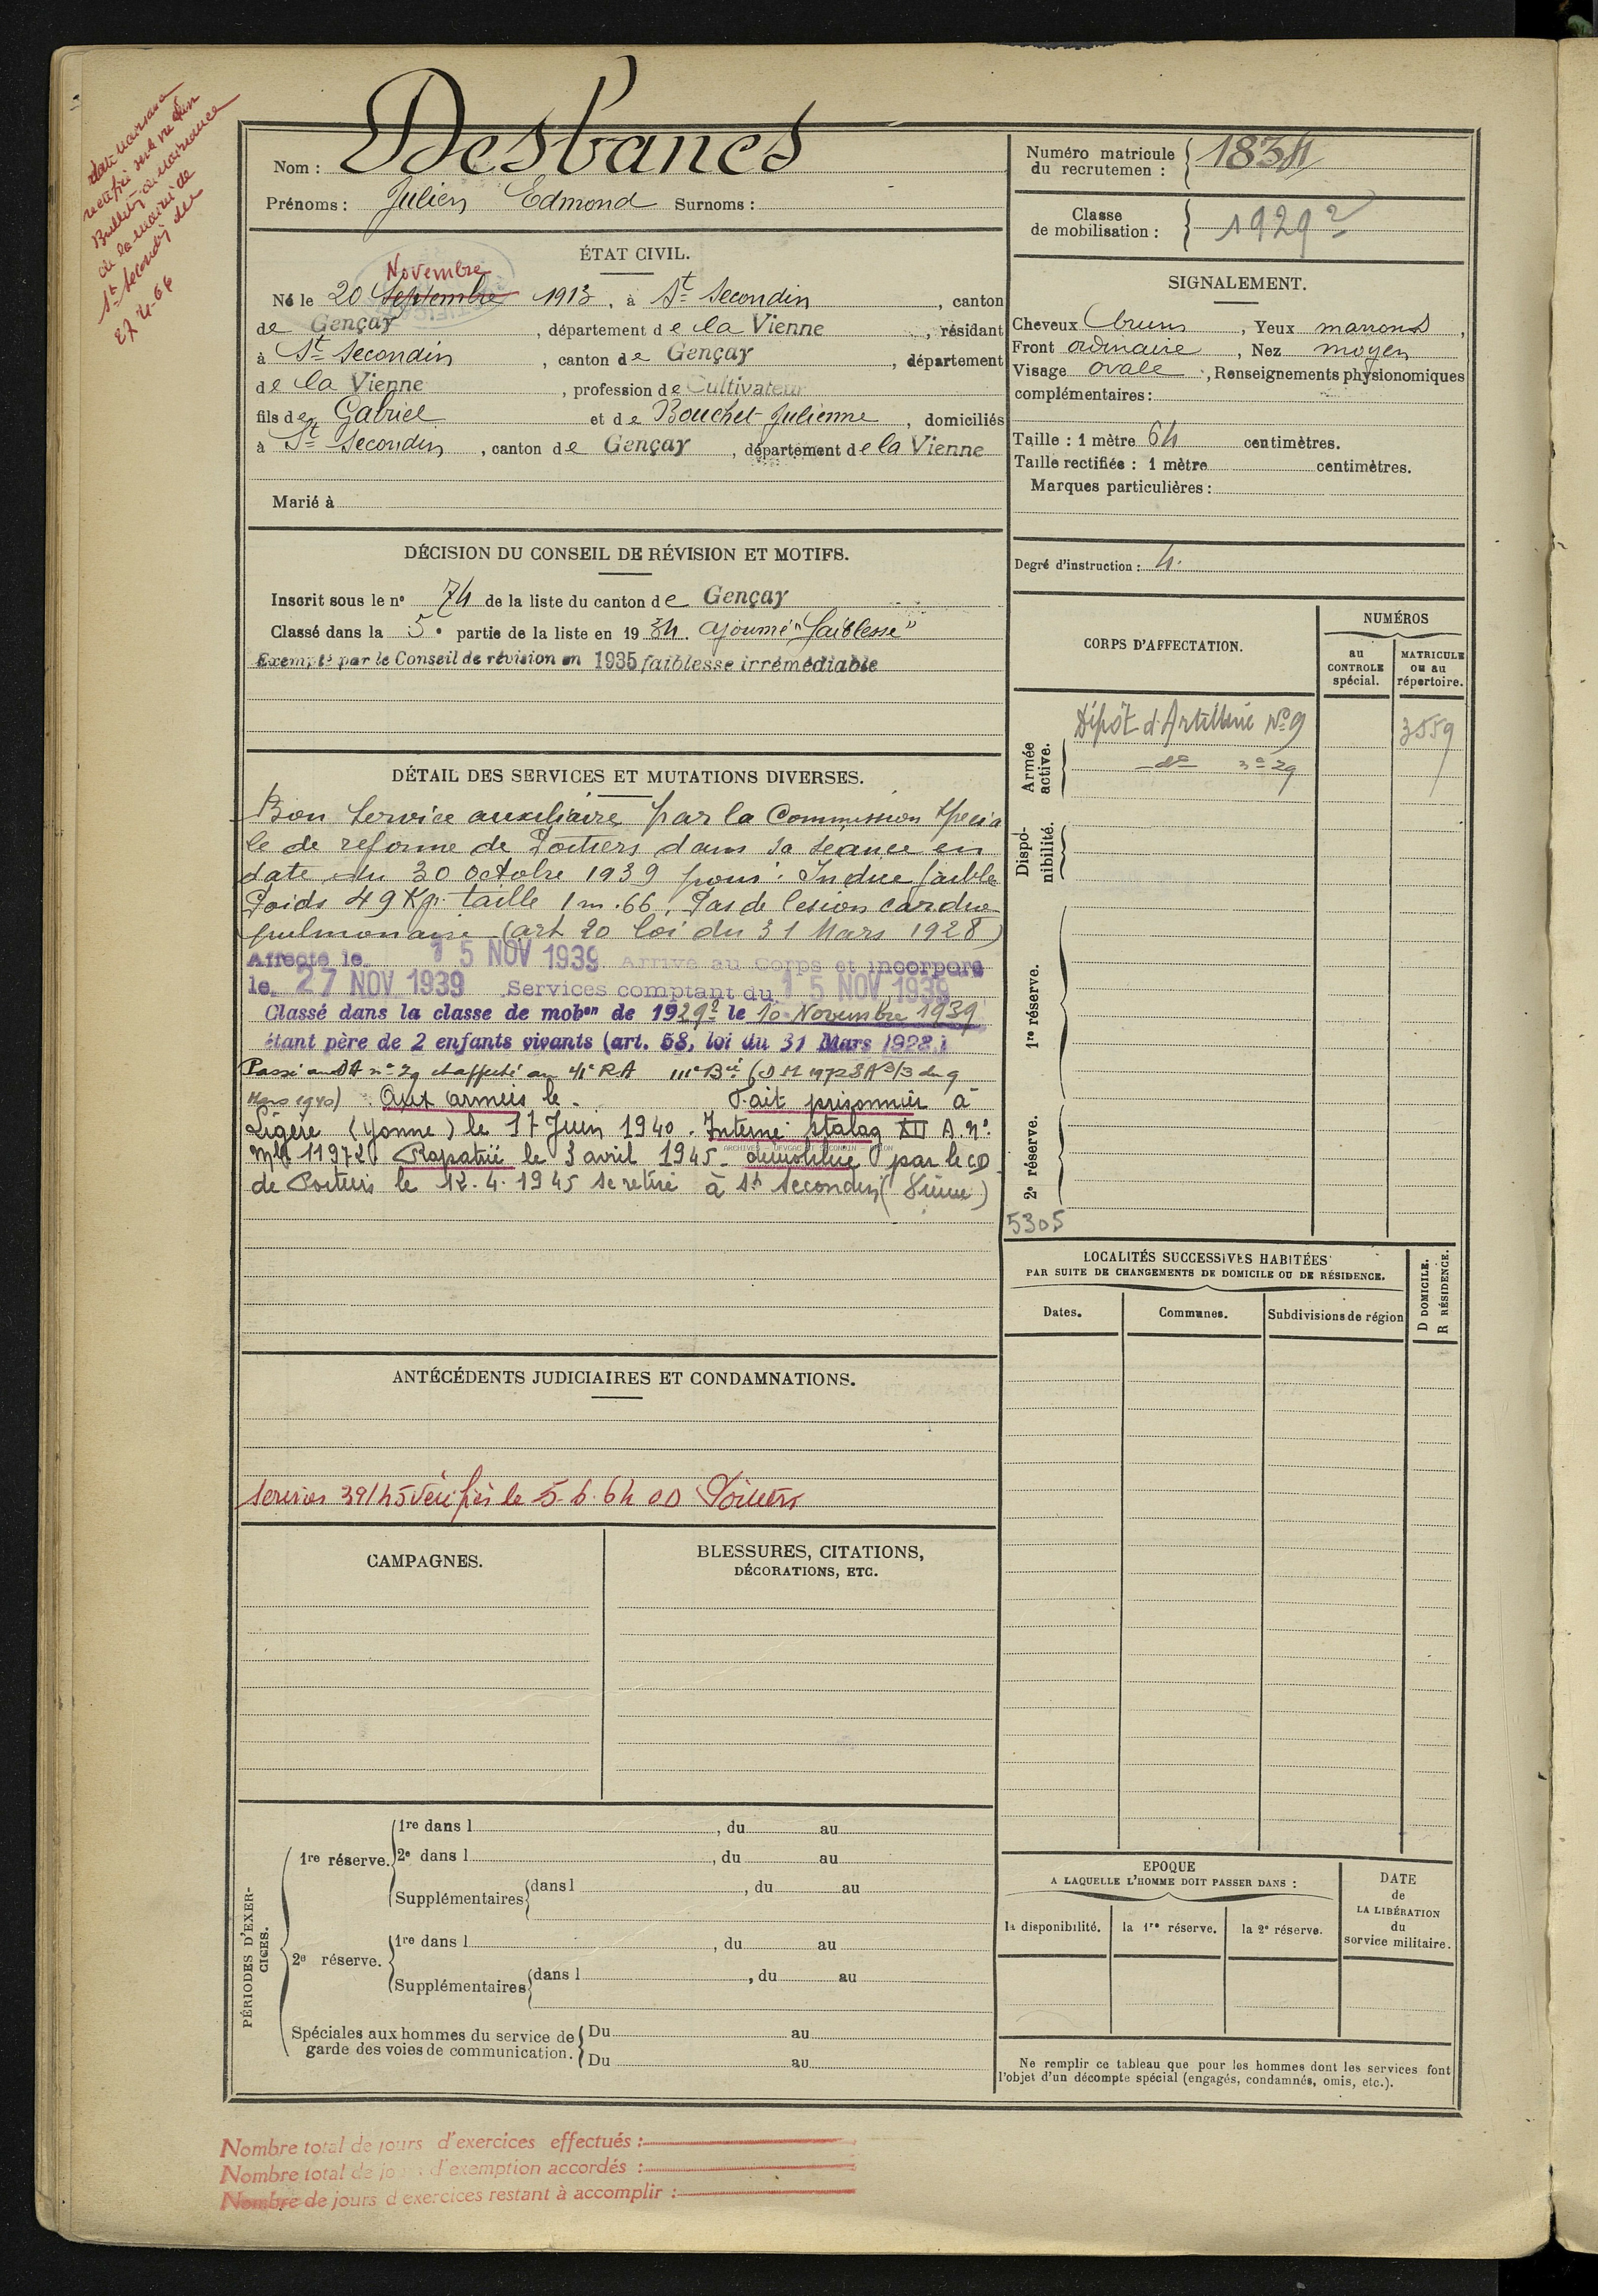 date naissance
rectifiée sur le vu d'un
Bulletin de naissance
de la mairie de
St Secondin
27-4-64
Nom : Desbancs
Prénoms : Julien Edmond Surnoms :
ÉTAT CIVIL.
Novembre
Né le 20 Septembre 1913, à St Secondin, canton
de Gençay, département de la Vienne, résidant
à St Secondin, canton de Gençay, département
de la Vienne, profession de Cultivateur
fils de Gabriel et de Bouchet Julienne, domiciliés
à St Secondin, canton de Gençay, département de la Vienne
Marié à
DÉCISION DU CONSEIL DE RÉVISION ET MOTIFS.
Inscrit sous le n° 74 de la liste du canton de Gençay
Classé dans la 5e partie de la liste en 1934. ajourné "faiblesse"
Exempté par le Conseil de révision en 1935 faiblesse irrémédiable
DÉTAIL DES SERVICES ET MUTATIONS DIVERSES.
Bon Service auxiliaire par la Commission spécia
le de réforme de Poitiers dans sa séance en
date du 30 octobre 1939 pour : Indice faible
Poids 49 Kgr taille 1m.66. Pas de lésion cardio
pulmonaire (art 20 loi du 31 Mars 1928)
Affecté le 15 NOV 1939 Arrivé au Corps et incorporé
le 27 NOV 1939 Services comptant du 15 NOV 1939
Classé dans la classe de mobon de 1929² le 10 Novembre 1939
étant père de 2 enfants vivants (art. 58, loi du 31 Mars 1928)
Passé au DA n° 29 et affecté au 41e RA 111e Bie (DM 1972 SA 3/3 du 9
Mars 1940) Aux armées le - Fait prisonnier à
Ligère (Yonne) le 17 Juin 1940. Interné stalag XII A. n°
mle 11972 Rapatrié le 3 avril 1945. démobilisé par le CD
de Poitiers le 12.4.1945 se retire à St Secondin (Vienne)
ANTÉCÉDENTS JUDICIAIRES ET CONDAMNATIONS.
Services 39/45 Vérifiés le 5.6.64 Poitiers
CAMPAGNES.
BLESSURES, CITATIONS,
DÉCORATIONS, ETC.
PÉRIODES D'EXER-
CICES.
1re réserve.
1re dans l , du au
2e dans l , du au
Supplémentaires dans l , du au
2e réserve.
1re dans l , du au
Supplémentaires dans l , du au
Spéciales aux hommes du service de
garde des voies de communication.
Du au
Du au
Numéro matricule
du recrutemen :
1834
Classe
de mobilisation :
1929²
SIGNALEMENT.
Cheveux bruns, Yeux marrons,
Front ordinaire, Nez moyen
Visage ovale, Renseignements physionomiques
complémentaires :
Taille : 1 mètre 64 centimètres.
Taille rectifiée : 1 mètre centimètres.
Marques particulières :
Degré d'instruction : 4.
CORPS D'AFFECTATION.
NUMÉROS
au
CONTROLE
spécial.
MATRICULE
ou au
répertoire.
Armée
active.
Dépôt d'Artillerie N° 9 3559
-do- n° 29
Dispo-
nibilité.
1re réserve.
2e réserve.
5305
LOCALITÉS SUCCESSIVES HABITÉES
PAR SUITE DE CHANGEMENTS DE DOMICILE OU DE RÉSIDENCE.
D DOMICILE.
R RÉSIDENCE.
Dates. Communes. Subdivisions de région
EPOQUE
A LAQUELLE L'HOMME DOIT PASSER DANS :
la disponibilité. la 1re réserve. la 2e réserve.
DATE
de
LA LIBÉRATION
du
service militaire.
Ne remplir ce tableau que pour les hommes dont les services font
l'objet d'un décompte spécial (engagés, condamnés, omis, etc.).
Nombre total de jours d'exercices effectués :
Nombre total de jours d'exemption accordés :
Nombre de jours d'exercices restant à accomplir :